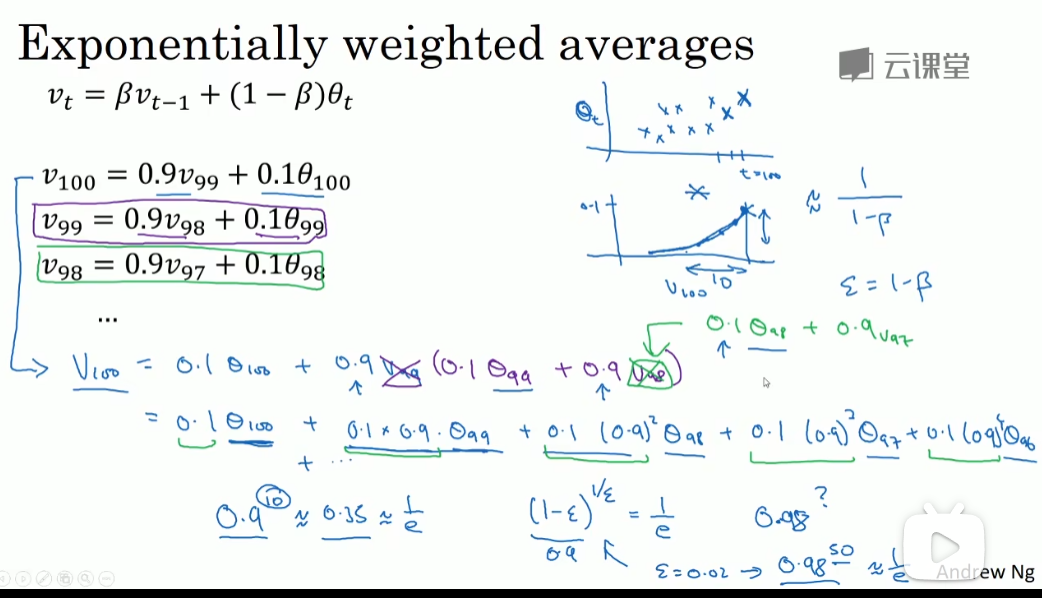 Exponentially weighted averages
云课堂
v_t = βv_{t−1} + (1 − β)θ_t
θ_t
t=100
v_100 = 0.9v_99 + 0.1θ_100
v_99 = 0.9v_98 + 0.1θ_99
v_98 = 0.9v_97 + 0.1θ_98
...
0.1
V_100 10
≈ 1/(1-β)
ε = 1-β
0.1 θ_98 + 0.9 v_97
V_100 = 0.1 θ_100 + 0.9 v_99 (0.1 θ_99 + 0.9 v_98)
= 0.1 θ_100 + 0.1 × 0.9 · θ_99 + 0.1 (0.9)^2 θ_98 + 0.1 (0.9)^3 θ_97 + 0.1 (0.9)^4 θ_96
+ ...
0.9^10 ≈ 0.35 ≈ 1/e
(1-ε)^{1/ε} = 1/e
0.9
0.98^?
ε = 0.02 → 0.98^50 ≈ 1/e
Andrew Ng